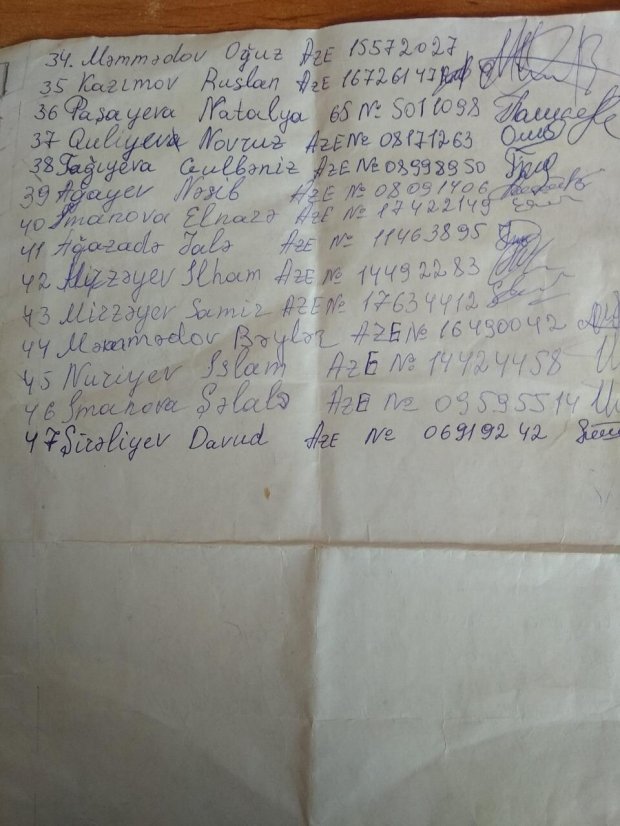 34. Məmmədov Oğuz AZE 15572027
35 Kazımov Ruslan AZE 16726147
36 Paşayeva Natalya 65 № 5011098
37 Quliyeva Novruz AZE № 08171263
38 Tağıyeva Gulbəniz AZE № 08998950
39 Ağayev Nəsib AZE № 08091406
40 İmanova Elnarə AZE № 17422149
41 Ağazadə Jalə AZE № 11463895
42 Mirzəyev İlham AZE № 14492283
43 Mirzəyev Samir AZE № 17634412
44 Məmmədov Bəylər AZE № 16490042
45 Nuriyev İslam AZE № 14424458
46 İmanova Şəlalə AZE № 09595514
47 Şirəliyev Davud AZE № 06919242